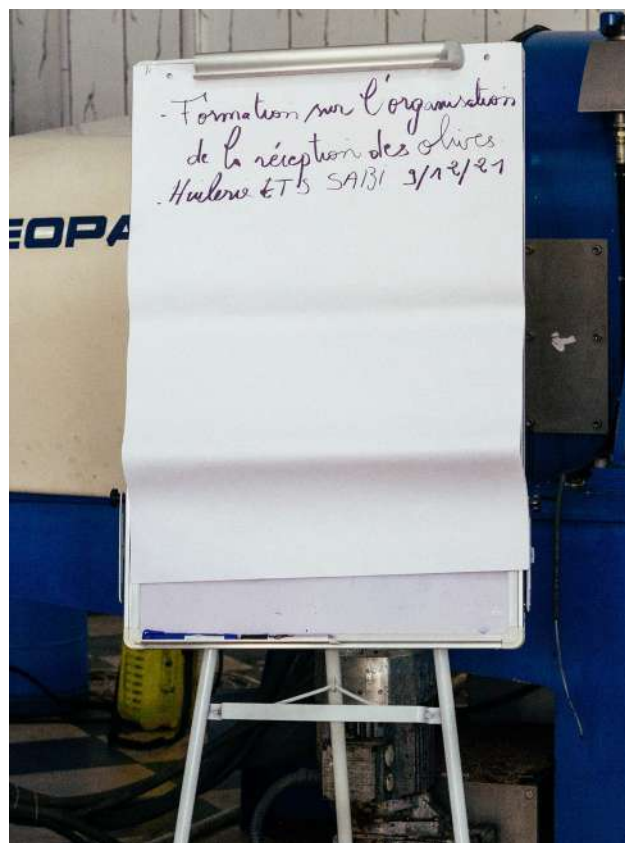 - Formation sur l'organisation
de la réception des olives
. Huilerie ETS SABI 9/12/21
EOPA